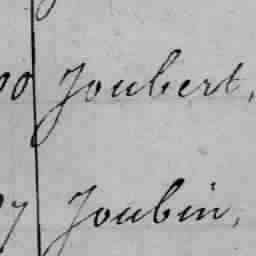 Joubert,
Joubin,